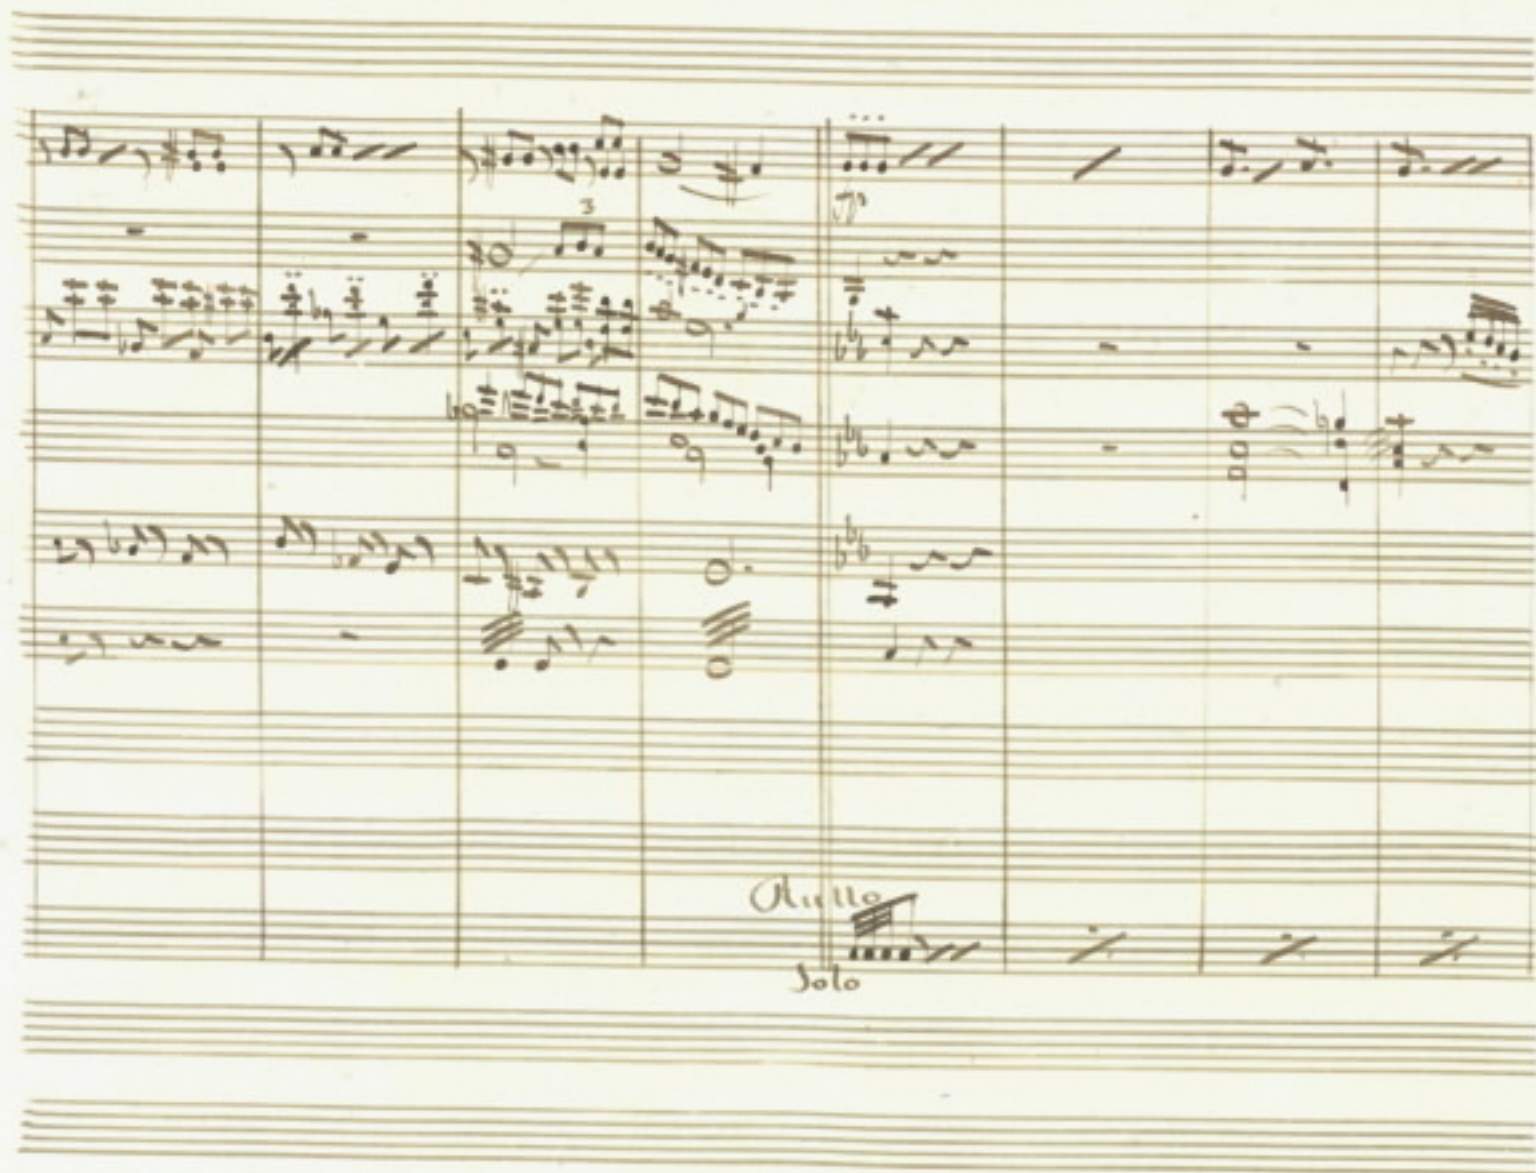 3
pp
Rullo
Solo